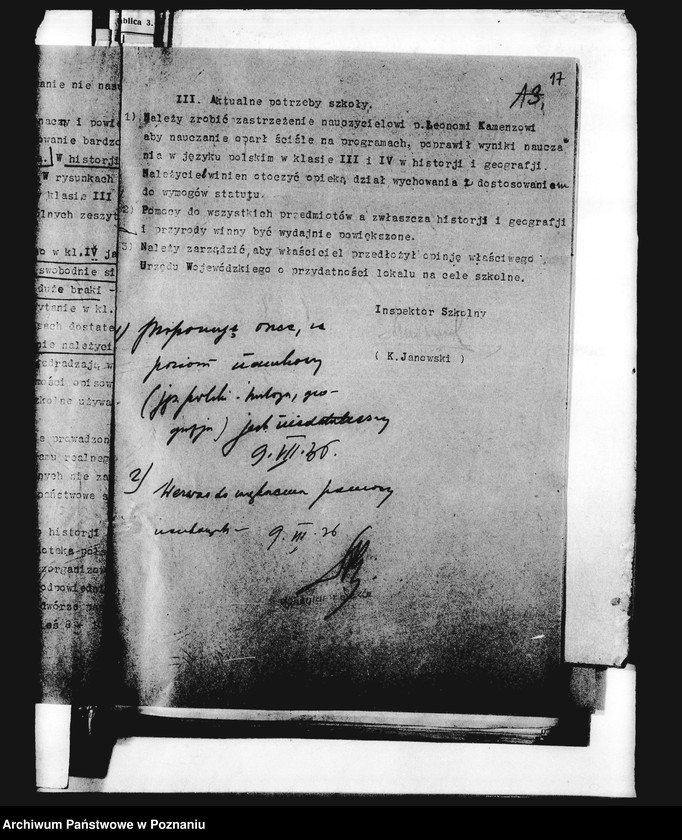 ublica 3.
17
A3,
anie nie nau
naczy i powi
owanie bardzo
W historji
W rysunkach
klasie III
lnych zeszyt
o w kl.IV ja
swobodnie si
duże braki -
ytanie w kl.
sach dostate
nie należyci
zdradzają w
ości opisów
zkolne używa
e prowadzon
amu realneg
nych nie za
państwowe s
o historji
oteka pols
zorganizow
odpowiedni
III. Aktualne potrzeby szkoły.
1) Należy zrobić zastrzeżenie nauczycielowi p.Leonomi Kamenzowi
aby nauczanie oparł ściśle na programach, poprawił wyniki naucza-
nia w języku polskim w klasie III i IV w historji i geografji.
Należycie winien otoczyć opieką dział wychowania z dostosowaniem
do wymogów statutu.
2) Pomocy do wszystkich przedmiotów a zwłaszcza historji i geografji
i przyrody winny być wydajnie powiększone.
3) Należy zarządzić, aby właściciel przedłożył opinję właściwego
Urzędu Wojewódzkiego o przydatności lokalu na cele szkolne.
Inspektor Szkolny
( K.Janowski )
1)
poziom naukowy
(jęz polski - historja, geo-
grafja) jest niedostateczny
9.VII.36.
2) Wezwać do pomocy
naukowych - 9.III.36
Archiwum Państwowe w Poznaniu